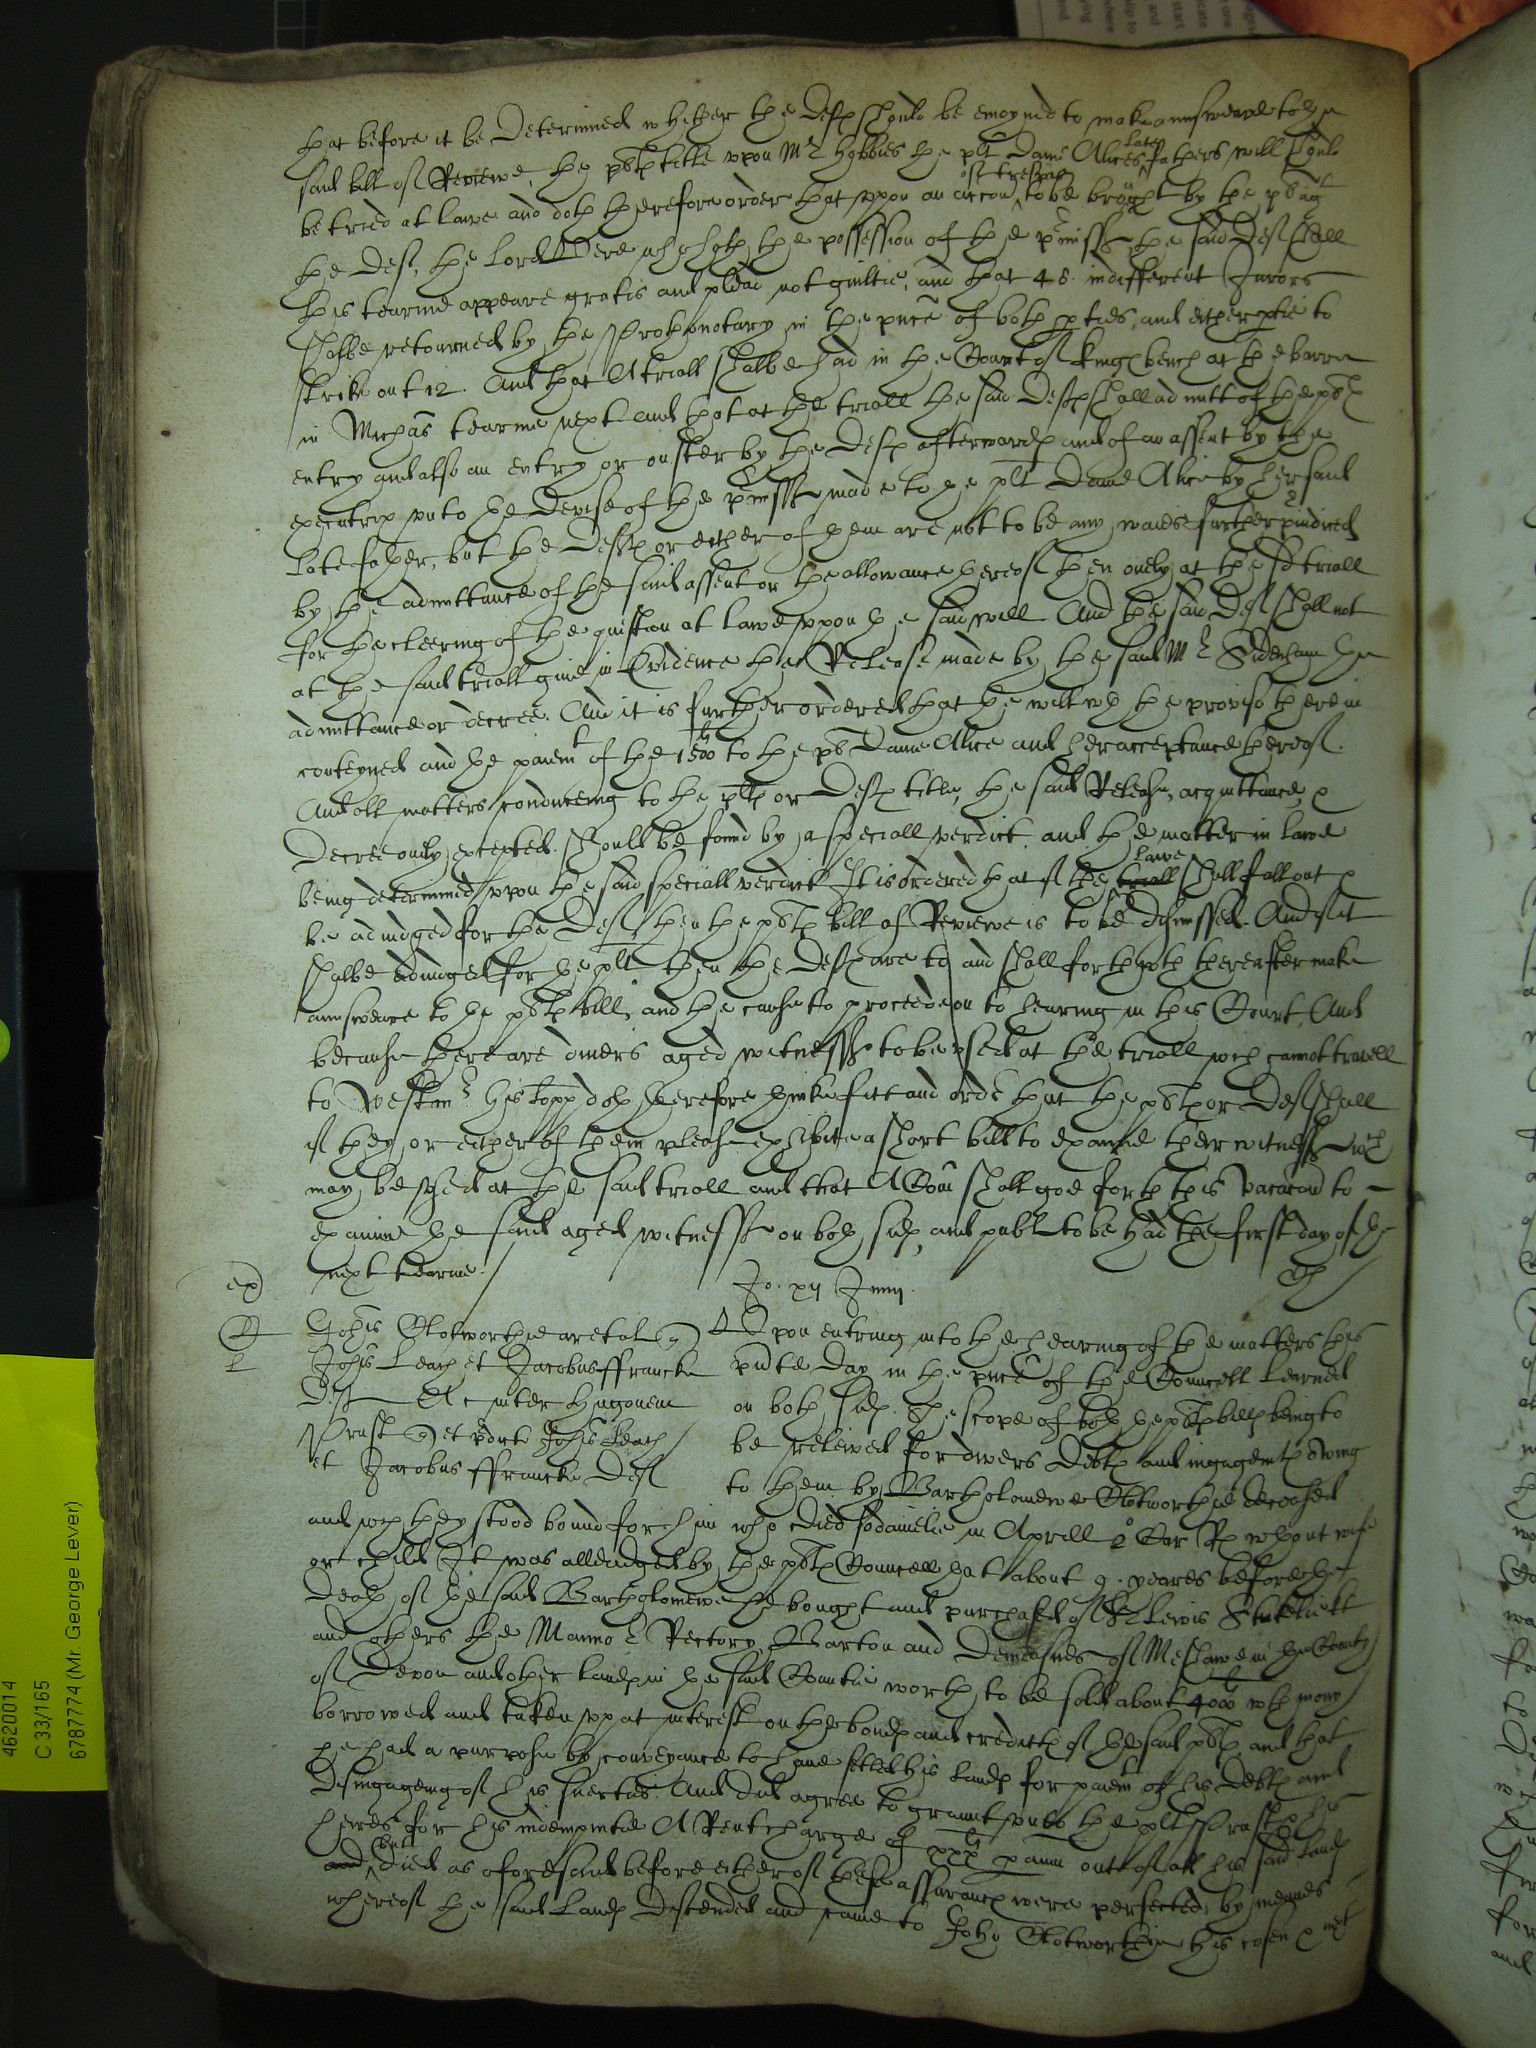 that before it be determined whether the Defts should be enioyned to make aunsweare to the
said bill of Reviewe, the pltfs title uppon Mr Hobbies the plt Dame Alices late fathers will should
be tried at lawe and doth therefore order that uppon an accon of trespas to be brought by the pl ag
the Deft, the Lord Vere wch hath the possession of the pmiss the said Deft shall
this tearme appeare gratis and plead not guiltie, and that 48 indifferent Jurors
shalbe retourned by the Prothonotary in the pnce of both pties, and either ptie to
strike out 12. And that A triall shalbe had in the Court of kings bench at the barre
in Michas tearme next and that at the triall the said Defts shall admitt of the plts
entry and also an entry or ouster by the Defts afterwards and of an assent by the
executrix unto the devise of the pmiss made to the plt Dame Alice by her said
late father, but the Defts or either of them are not to be any waies further piudiced
by the admittance of the said assent or the allowance thereof then onely at the sd triall
for the cleering of the question at lawe uppon the said will And the said Deft shall not
at the said triall give in Evidence the Release made by the said Mr Sidenham the
admittance or decree. And it is further ordered that the will wth the proviso therein
conteyned and the paiemt of the 1500 li to the pl Dame Alice and her acceptance thereof.
And all matters conducing to the plts or Defts title, the said Release, acquittance,
Decree onely excepted. should be found by a speciall verdict. and the matter in lawe
being determined uppon the said speciall verdict It is ordered that if the triall lawe shall fall out
be adiudged for the Deft then the plts bill of Reviewe is to be dismissed. And if it
shalbe adiudged for the plt then the Defts are to and shall forthwth thereafter make
aunsweare to the plts bill, and the cause to proceede on to hearing in this Court, And
because there are divers aged witnesses to be used at the triall wch cannot travell
to Westmr his lopp doth therefore thinke fitt and order that the plts or Deft shall
if they or either of them please exhibite a short bill to examine their witnesses wch
may be used at the said triall and that A Com shall goe forth this vacacon to
examine the said aged witnesses on both sides, and publ to be had the first day of the
next tearme.
ex
Jo. xij Junij.
Johis Clotworthie ar et al q
Johis Leach et Jacobus ffrancke
Deft Et inter Hugonem
Prust q et pdict Johis Leach
et Jacobus ffrancke Deft
Upon entring into the hearing of the matters this
pnte day in the pnce of the Councell learned
on both sides. The scope of both the plts bills being to
be releived for divers Debts and ingagemts owing
to them by Bartholomewe Clotworthie deceased
and wch they stood bound for him who died sodainelie in Aprill 2o Car R without wife
or child It was alleadged by the plts Councell that about 9. yeares before the
death of the said Bartholomewe he bought and purchased of Sr Lewis Stukelie kt
and others the Mannor Rectory Barton and Demeasnes of Meshawe in the County
of Devon and other lands in the said Countie worth to be sold about 4000 li wth mony
borrowed and taken upp at interest on the bonds and creditts of the said plts and that
he had a purpose by conveyance to have setled his lands for paiemt of his Debts and
disingageing of his suerties. And did agree to graunt unto the plt Prust his
heires for his indempnitie A Rent charge of xxx li p ann out of all his said lands
and but died as aforesaid before either of these assurancs were perfected, by meanes
whereof the said Lands descended and came to John Clotworthie his cosen
4620014
C 33/165
6787774 (Mr. George Lever)